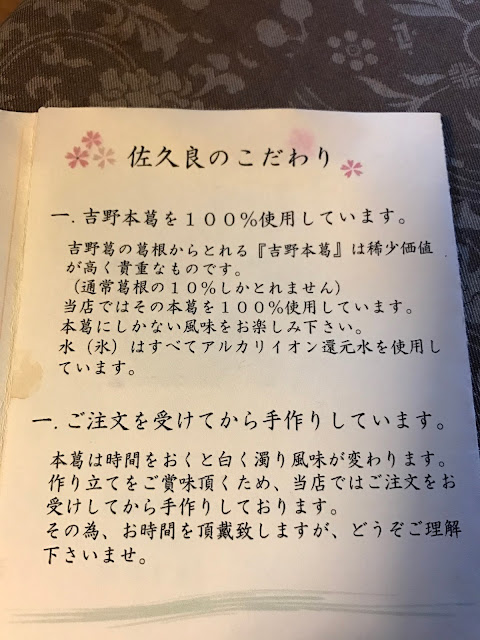 佐久良のこだわり
一．吉野本葛を１００％使用しています。
吉野葛の葛根からとれる『吉野本葛』は稀少価値
が高く貴重なものです。
（通常葛根の１０％しかとれません）
当店ではその本葛を１００％使用しています。
本葛にしかない風味をお楽しみ下さい。
水（氷）はすべてアルカリイオン還元水を使用し
ています。
一．ご注文を受けてから手作りしています。
本葛は時間をおくと白く濁り風味が変わります。
作り立てをご賞味頂くため、当店ではご注文をお
受けしてから手作りしております。
その為、お時間を頂戴致しますが、どうぞご理解
下さいませ。